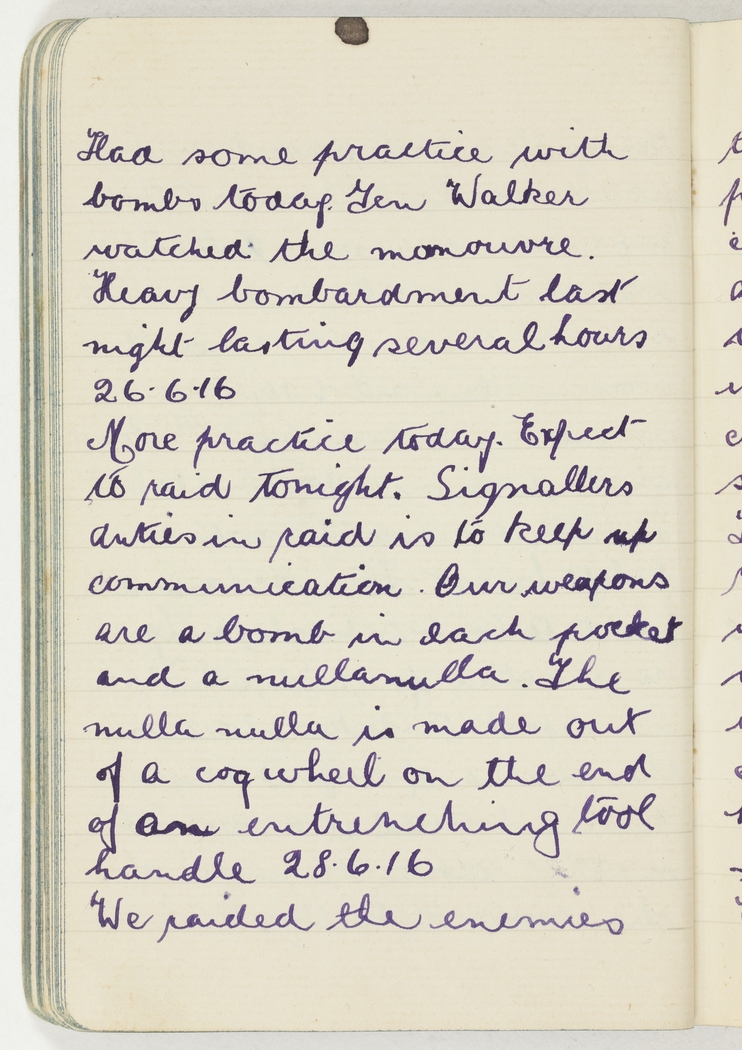 Had some practice with
bombs today. Gen Walker
watched the manouvre.
Heavy bombardment last
night lasting several hours
26.6.16
More practice today. Expect
to raid tonight. Signallers
duties in raid is to keep up
communication. Our weapons
are a bomb in each pocket
and a nullanulla. The
nulla nulla is made out
of a cogwheel on the end
of an entrenching tool
handle 28.6.16
We raided the enemies